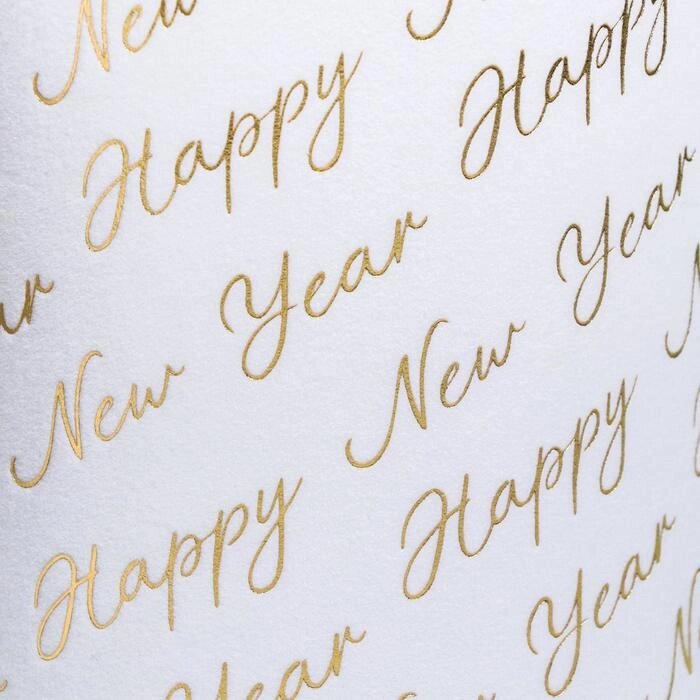 New
Happy Happy
Year Year
ar
New New
Happy Happy
Year Year